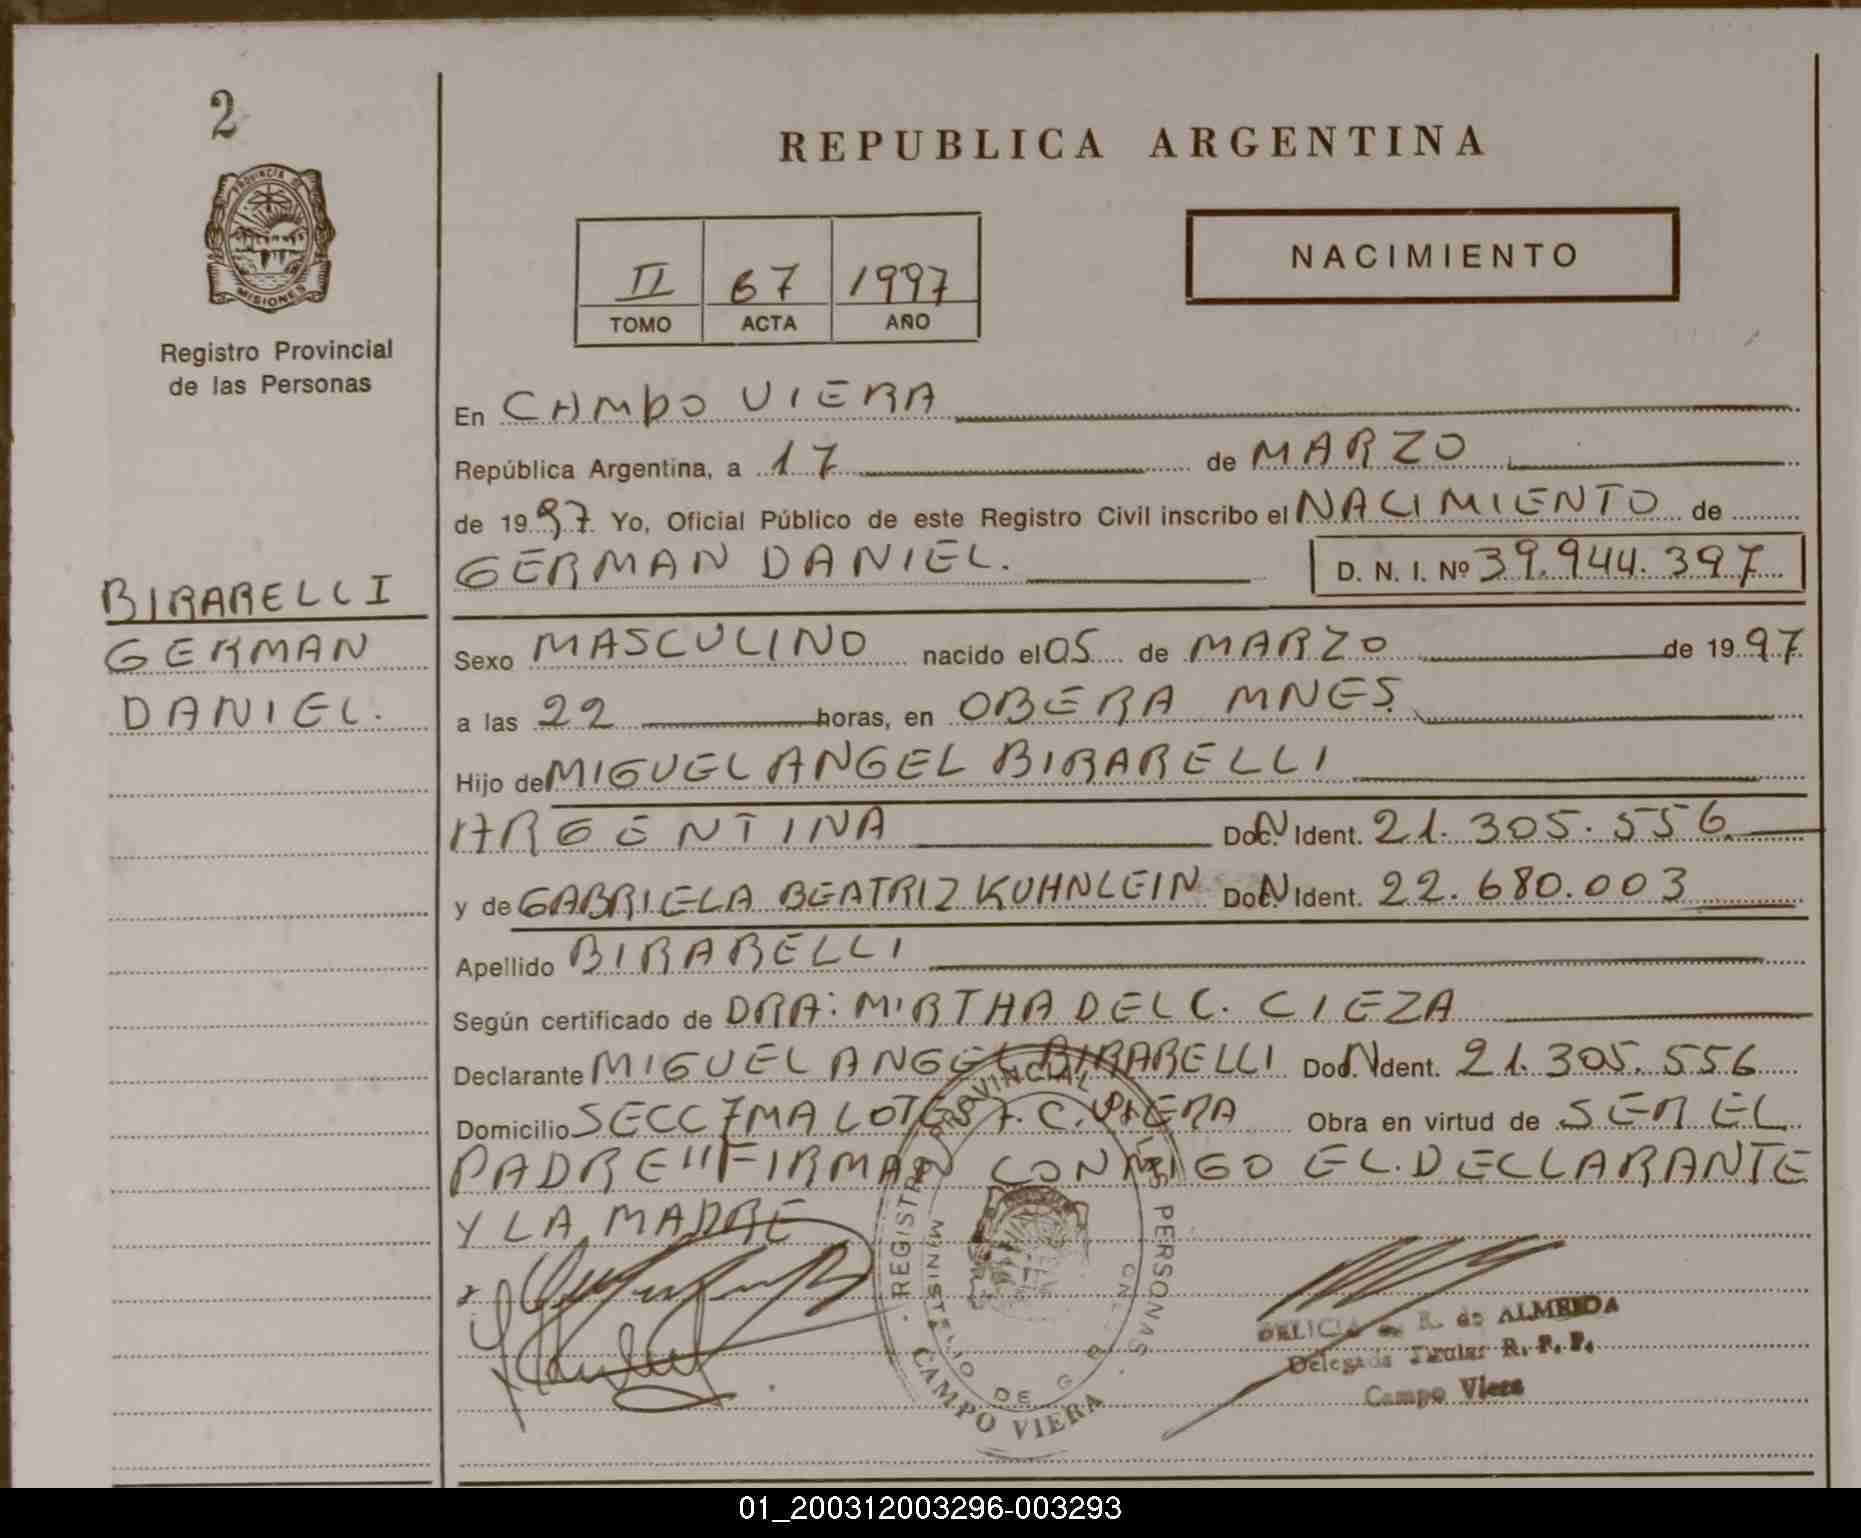 2
PROVINCIA DE
MISIONES
Registro Provincial
de las Personas
BIRARELLI
GERMAN
DANIEL.
REPUBLICA ARGENTINA
II 67 1997
TOMO ACTA AÑO
NACIMIENTO
En CAMPO VIERA
República Argentina, a 17 de MARZO
de 1997 Yo, Oficial Público de este Registro Civil inscribo el NACIMIENTO de
GERMAN DANIEL. D. N. I. Nº 39.944.397
Sexo MASCULINO nacido el 05 de MARZO de 1997
a las 22 horas, en OBERA MNES.
Hijo de MIGUEL ANGEL BIRARELLI
ARGENTINA Doc. N Ident. 21.305.556
y de GABRIELA BEATRIZ KUHNLEIN Doc. N Ident. 22.680.003
Apellido BIRARELLI
Según certificado de DRA: MIRTHA DEL C. CIEZA
Declarante MIGUEL ANGEL BIRARELLI Doc. N Ident. 21.305.556
Domicilio SECC 7MA LOTE C. VIERA Obra en virtud de SER EL
PADRE" FIRMAN CONMIGO EL. DECLARANTE
Y LA MADRE
REGISTRO PROVINCIAL DE LAS PERSONAS
MINISTERIO DE G
CAMPO VIERA
DELICIA R. de ALMEIDA
Delegada Titular R. P. P.
Campo Viera
01_200312003296-003293